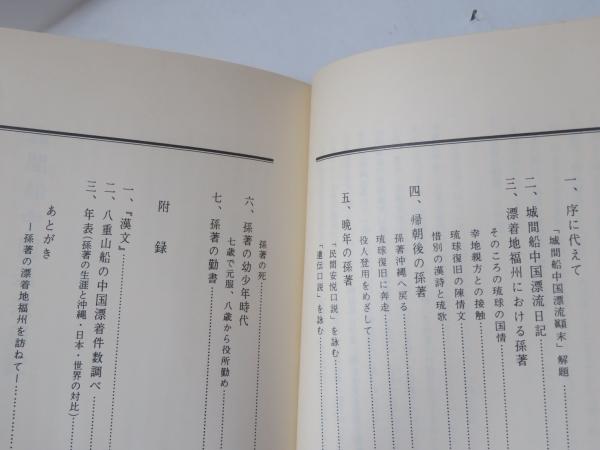 一、序に代えて
「城間船中国漂流顚末」解題
二、城間船中国漂流日記
三、漂着地福州における孫著
そのころの琉球の国情
幸地親方との接触
琉球復旧の陳情文
惜別の漢詩と琉歌
四、帰朝後の孫著
孫著沖縄へ戻る
琉球復旧に奔走
役人登用をめざして
五、晩年の孫著
「民間安悦口説」を詠む
「遺伝口説」を詠む
孫著の死
六、孫著の幼少年時代
七歳で元服、八歳から役所勤め
七、孫著の勤書
附録
一、『漢文』
二、八重山船の中国漂着件数調べ
三、年表(孫著の生涯と沖縄・日本・世界の対比)
あとがき
―孫著の漂着地福州を訪ねて―